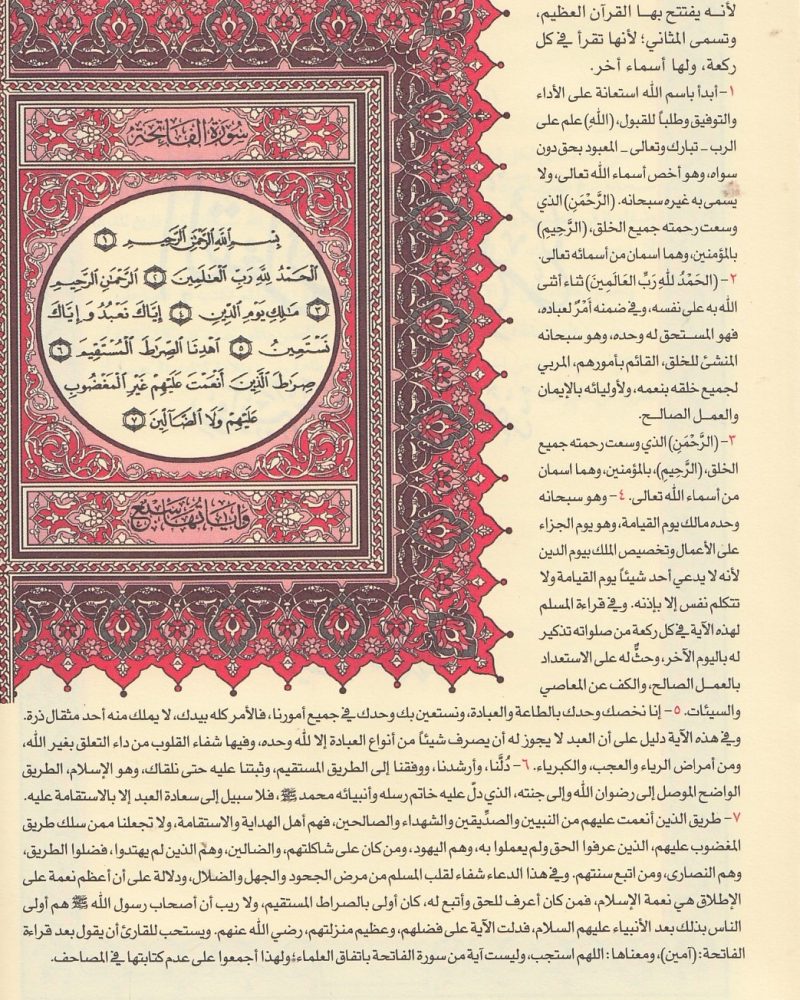 لأنـه يفتتح بهـا القرآن العظيم،
وتسمى المثاني؛ لأنها تقرأ في كل
ركعة، ولها أسماء أخر.
١- أبدأ باسم الله استعانة على الأداء
والتوفيق وطلباً للقبول، (اللهِ) علم على
الرب ـ تبارك وتعالى ـ المعبود بحق دون
سواه، وهو أخص أسماء الله تعالى، ولا
يسمى به غيره سبحانه. (الرَّحْمَنِ) الذي
وسعت رحمته جميع الخلق، (الرَّحِيمِ)
بالمؤمنين، وهما اسمان من أسمائه تعالى.
٢- (الحَمْدُ للهِ رَبِّ العَالَمِينَ) ثناء أثنى
الله به على نفسه، وفي ضمنه أَمْرٌ لعباده،
فهو المستحق له وحده، وهو سبحانه
المنشئ للخلق، القائم بأمورهم، المربي
لجميع خلقه بنعمه، ولأوليائه بالإيمان
والعمـل الصالـح.
٣- (الرَّحْمَنِ) الذي وسعت رحمته جميع
الخلق، (الرَّحِيمِ)، بالمؤمنين، وهما اسمان
من أسماء الله تعالى. ٤- وهو سبحانه
وحده مالك يوم القيامة، وهو يوم الجزاء
على الأعمال وتخصيص الملك بيوم الدين
لأنه لا يدعي أحد شيئاً يوم القيامة ولا
تتكلم نفس إلا بإذنه. وفي قراءة المسلم
لهذه الآية في كل ركعة من صلواته تذكير
له باليوم الآخر، وحثٌّ له على الاستعداد
بالعمـل الصالح، والكف عن المعاصي
والسيئات. ٥- إنا نخصك وحدك بالطاعة والعبادة، ونستعين بك وحدك في جميع أمورنا، فالأمر كله بيدك، لا يملك منه أحد مثقال ذرة.
وفي هذه الآية دليل على أن العبد لا يجوز له أن يصرف شيئاً من أنواع العبادة إلا لله وحده، وفيها شفاء القلوب من داء التعلق بغير الله،
ومن أمراض الرياء والعجب، والكبرياء. ٦- دُلَّنا، وأرشدنا، ووفقنا إلى الطريق المستقيم، وثبتنا عليه حتى نلقاك، وهو الإسلام، الطريق
الواضح الموصل إلى رضوان الله وإلى جنته، الذي دلّ عليه خاتم رسله وأنبيائه محمد ﷺ، فلا سبيل إلى سعادة العبد إلا بالاستقامة عليه.
٧- طريق الذين أنعمت عليهم من النبيين والصدِّيقين والشهداء والصالحين، فهم أهل الهداية والاستقامة، ولا تجعلنا ممن سلك طريق
المغضوب عليهم، الذين عرفوا الحق ولم يعملوا به، وهم اليهود، ومن كان على شاكلتهم، والضالين، وهم الذين لم يهتدوا، فضلوا الطريق،
وهم النصارى، ومن اتبع سنتهم. وفي هذا الدعاء شفاء لقلب المسلم من مرض الجحود والجهل والضلال، ودلالة على أن أعظم نعمة على
الإطلاق هي نعمة الإسلام، فمن كان أعرف للحق وأتبع له، كان أولى بالصراط المستقيم، ولا ريب أن أصحاب رسول الله ﷺ هم أولى
الناس بذلك بعد الأنبياء عليهم السلام، فدلت الآية على فضلهم، وعظيم منزلتهم، رضي الله عنهم. ويستحب للقارئ أن يقول بعد قراءة
الفاتحة: (آمين)، ومعناها: اللهم استجب، وليست آية من سورة الفاتحة باتفاق العلماء؛ ولهذا أجمعوا على عدم كتابتها في المصاحف.
سُورَةُ الفَاتِحَةِ
بِسْمِ ٱللَّهِ ٱلرَّحْمَٰنِ ٱلرَّحِيمِ ١
ٱلْحَمْدُ لِلَّهِ رَبِّ ٱلْعَٰلَمِينَ ٢ ٱلرَّحْمَٰنِ ٱلرَّحِيمِ
٣ مَٰلِكِ يَوْمِ ٱلدِّينِ ٤ إِيَّاكَ نَعْبُدُ وَإِيَّاكَ
نَسْتَعِينُ ٥ ٱهْدِنَا ٱلصِّرَٰطَ ٱلْمُسْتَقِيمَ ٦
صِرَٰطَ ٱلَّذِينَ أَنْعَمْتَ عَلَيْهِمْ غَيْرِ ٱلْمَغْضُوبِ
عَلَيْهِمْ وَلَا ٱلضَّآلِّينَ ٧
وآياتها سبع